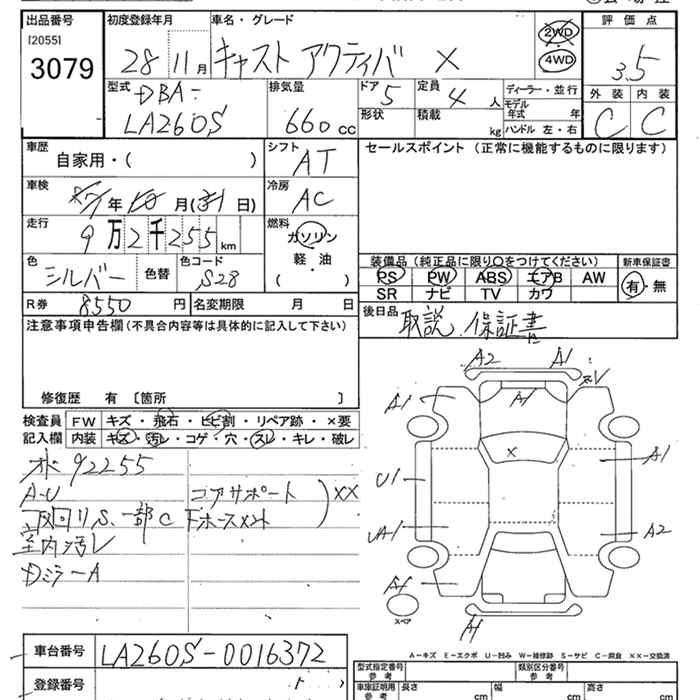 出品番号 初度登録年月 車名・グレード 評価点
[2055]
3079
28 11月 キャスト アクティバ X 2WD 4WD 3.5
型式 排気量 ドア 定員 ディーラー・並行 外装 内装
DBA- 5 4人 モデル年式 年 C C
LA260S 660cc 形状 積載 kg ハンドル 左・右
車歴 シフト セールスポイント (正常に機能するものに限ります)
自家用・( ) AT
車検 冷房
年 月( 日) AC
走行 燃料
9万2千255km ガソリン
軽・油
( ・ )
色 色替 色コード
シルバー S28
装備品(純正品に限り〇をつけてください) 新車保証書
PS PW ABS エアB AW 有・無
SR ナビ TV カワ
R券 8550円 名変期限 月 日
後日品 取説.保証書
注意事項申告欄(不具合内容等は具体的に記入して下さい)
修復歴 有 〔箇所 〕
検査員 FW キズ・飛石・ヒビ割・リペア跡・×要
記入欄 内装 キズ・汚レ・コゲ・穴・スレ・キレ・破レ
92255
A-U コアサポート XX
下回りS、一部C Fホースメント
室内汚レ
DミラーA
A2 A1
A1 A1
X A1
U1
UA1 A2
スペア
A-キズ E-エクボ U-凹み W-補修跡 S-サビ C-腐食 ××-交換済
車台番号 LA260S-0016372
登録番号
型式指定番号 参考 類別区分番号 参考
車庫証明用 参考 長さ cm 幅 cm 高さ cm